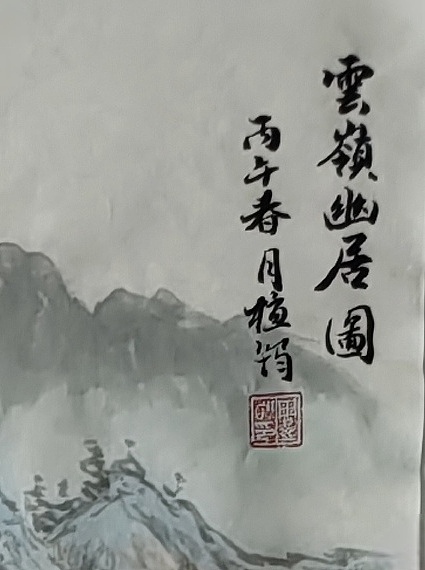 雲嶺幽居圖
丙午春月植筠